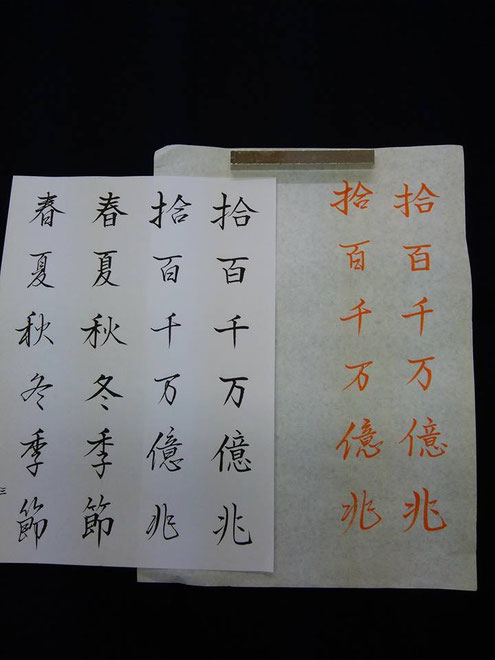 拾百千万億兆
拾百千万億兆
拾百千万億兆
拾百千万億兆
春夏秋冬季節
春夏秋冬季節
三